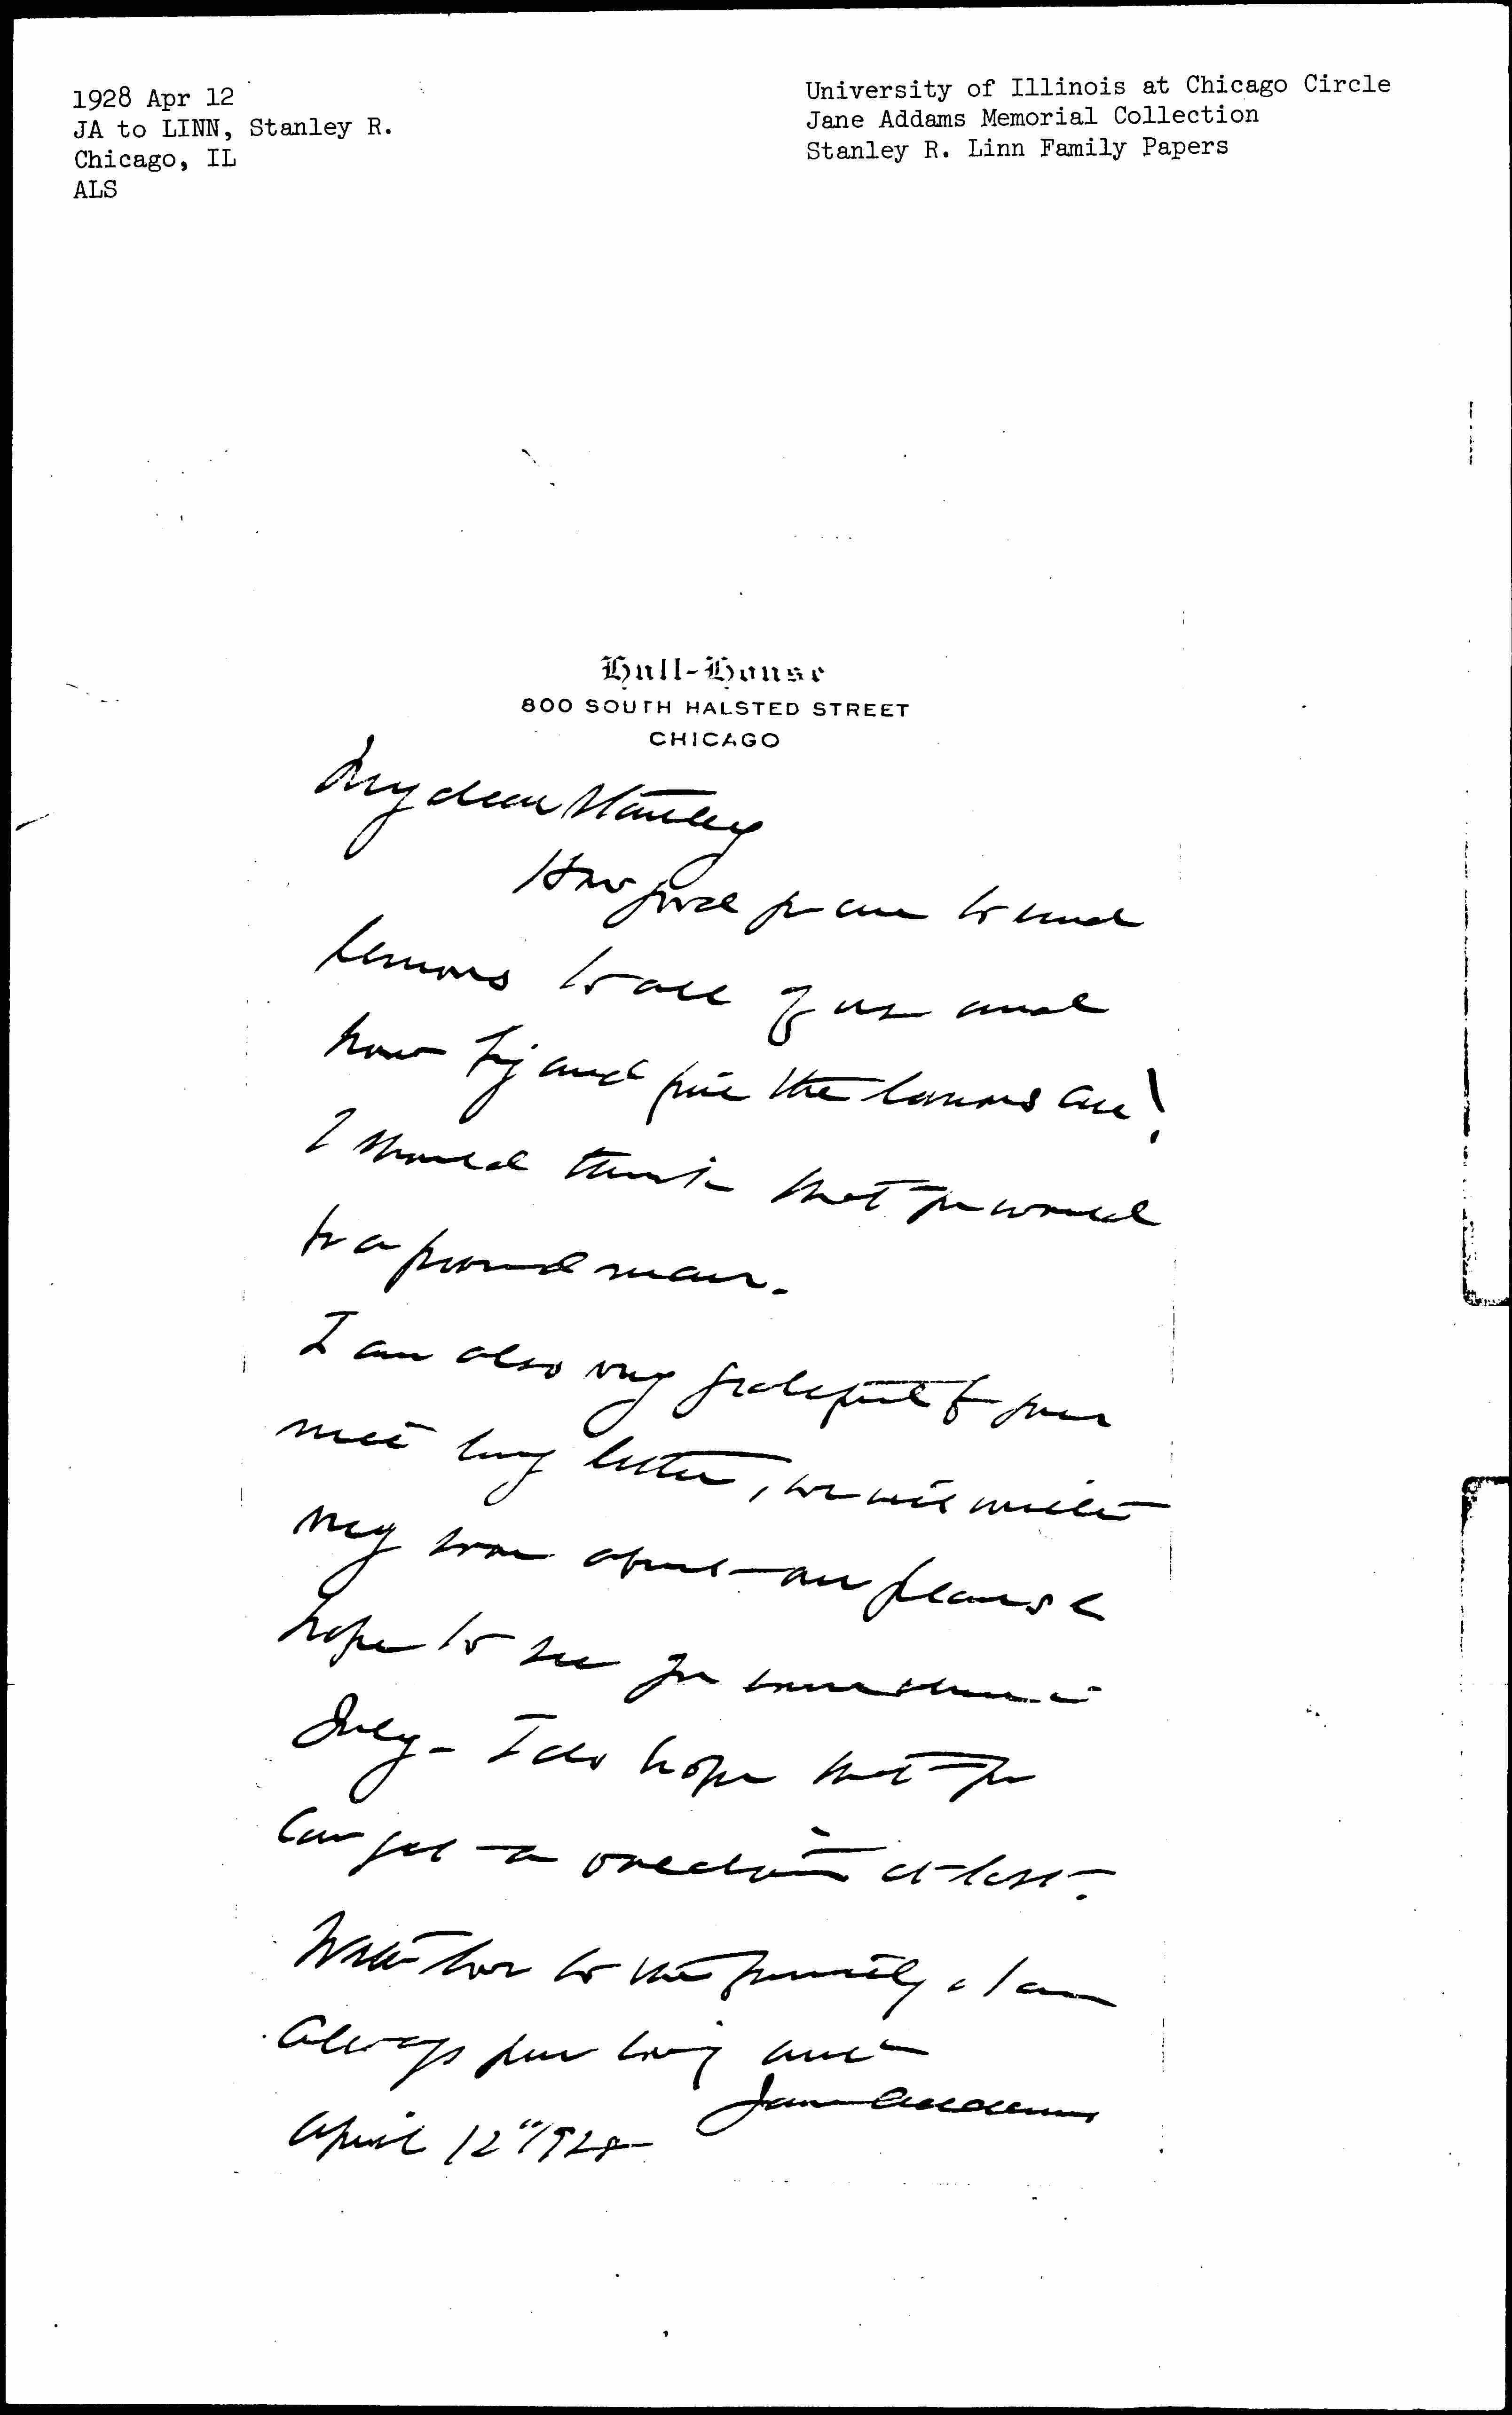 1928 Apr 12
JA to LINN, Stanley R.
Chicago, IL
ALS
University of Illinois at Chicago Circle
Jane Addams Memorial Collection
Stanley R. Linn Family Papers
Hull-House
800 SOUTH HALSTED STREET
CHICAGO
My dear Stanley
How good you are to send
lemons to all of us and
how big and fine the lemons are!
I should think that you would
be a proud man.
I am also very grateful for your
nice long letter, we will write
very soon about our plans &
hope to see you sometime in
July - I do hope that you
can get a vacation at last.
With love to the family & I am
always your loving aunt
Jane Addams
April 12" 1928